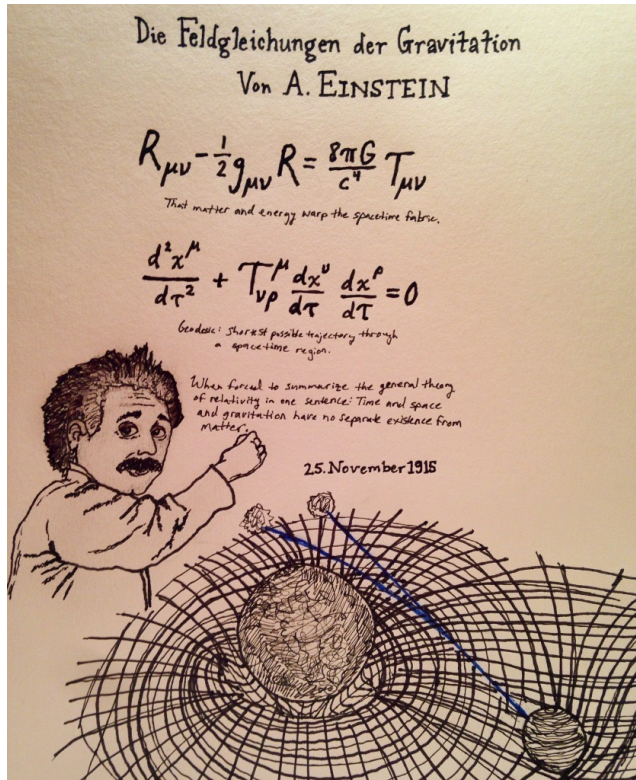 Die Feldgleichungen der Gravitation
Von A. EINSTEIN
R_μν - 1/2 g_μν R = 8πG/c⁴ T_μν
That matter and energy warp the spacetime fabric.
d²x^μ/dτ² + T^μ_νρ dx^ν/dτ dx^ρ/dτ = 0
Geodesic: Shortest possible trajectory through
a space-time region.
When forced to summarize the general theory
of relativity in one sentence: Time and space
and gravitation have no separate existence from
matter.
25. November 1915